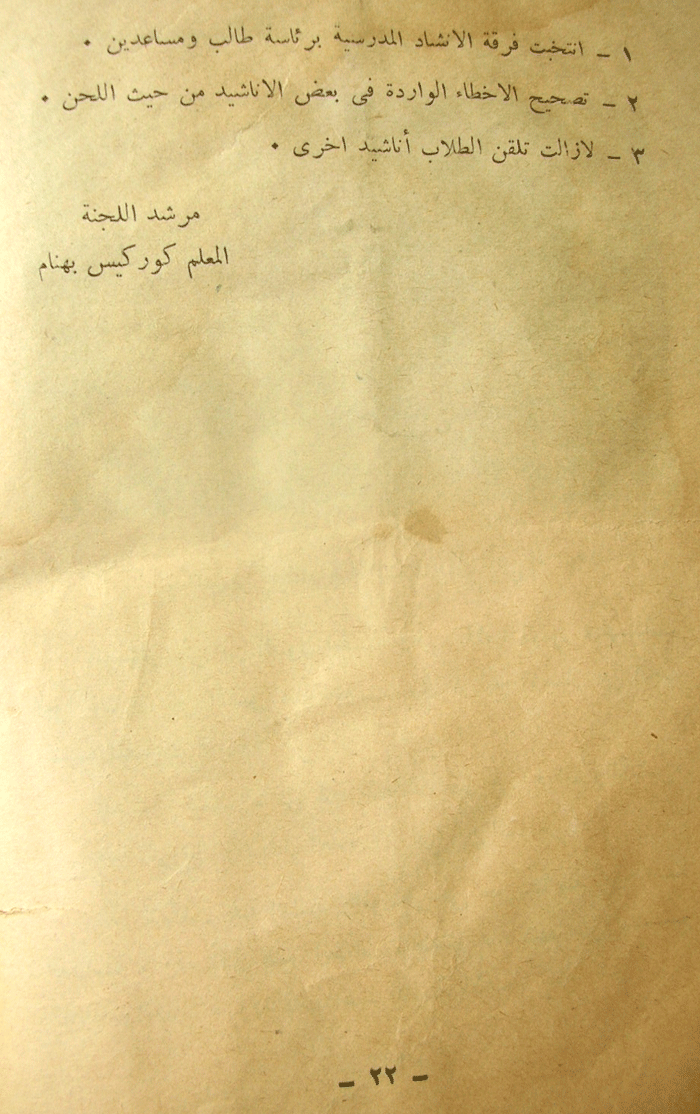 ١ - انتخبت فرقة الانشاد المدرسية برئاسة طالب ومساعدين .
٢ - تصحيح الاخطاء الواردة فى بعض الاناشيد من حيث اللحن .
٣ - لازالت تلقن الطلاب أناشيد اخرى .
مرشد اللجنة
المعلم كوركيس بهنام
- ٢٢ -